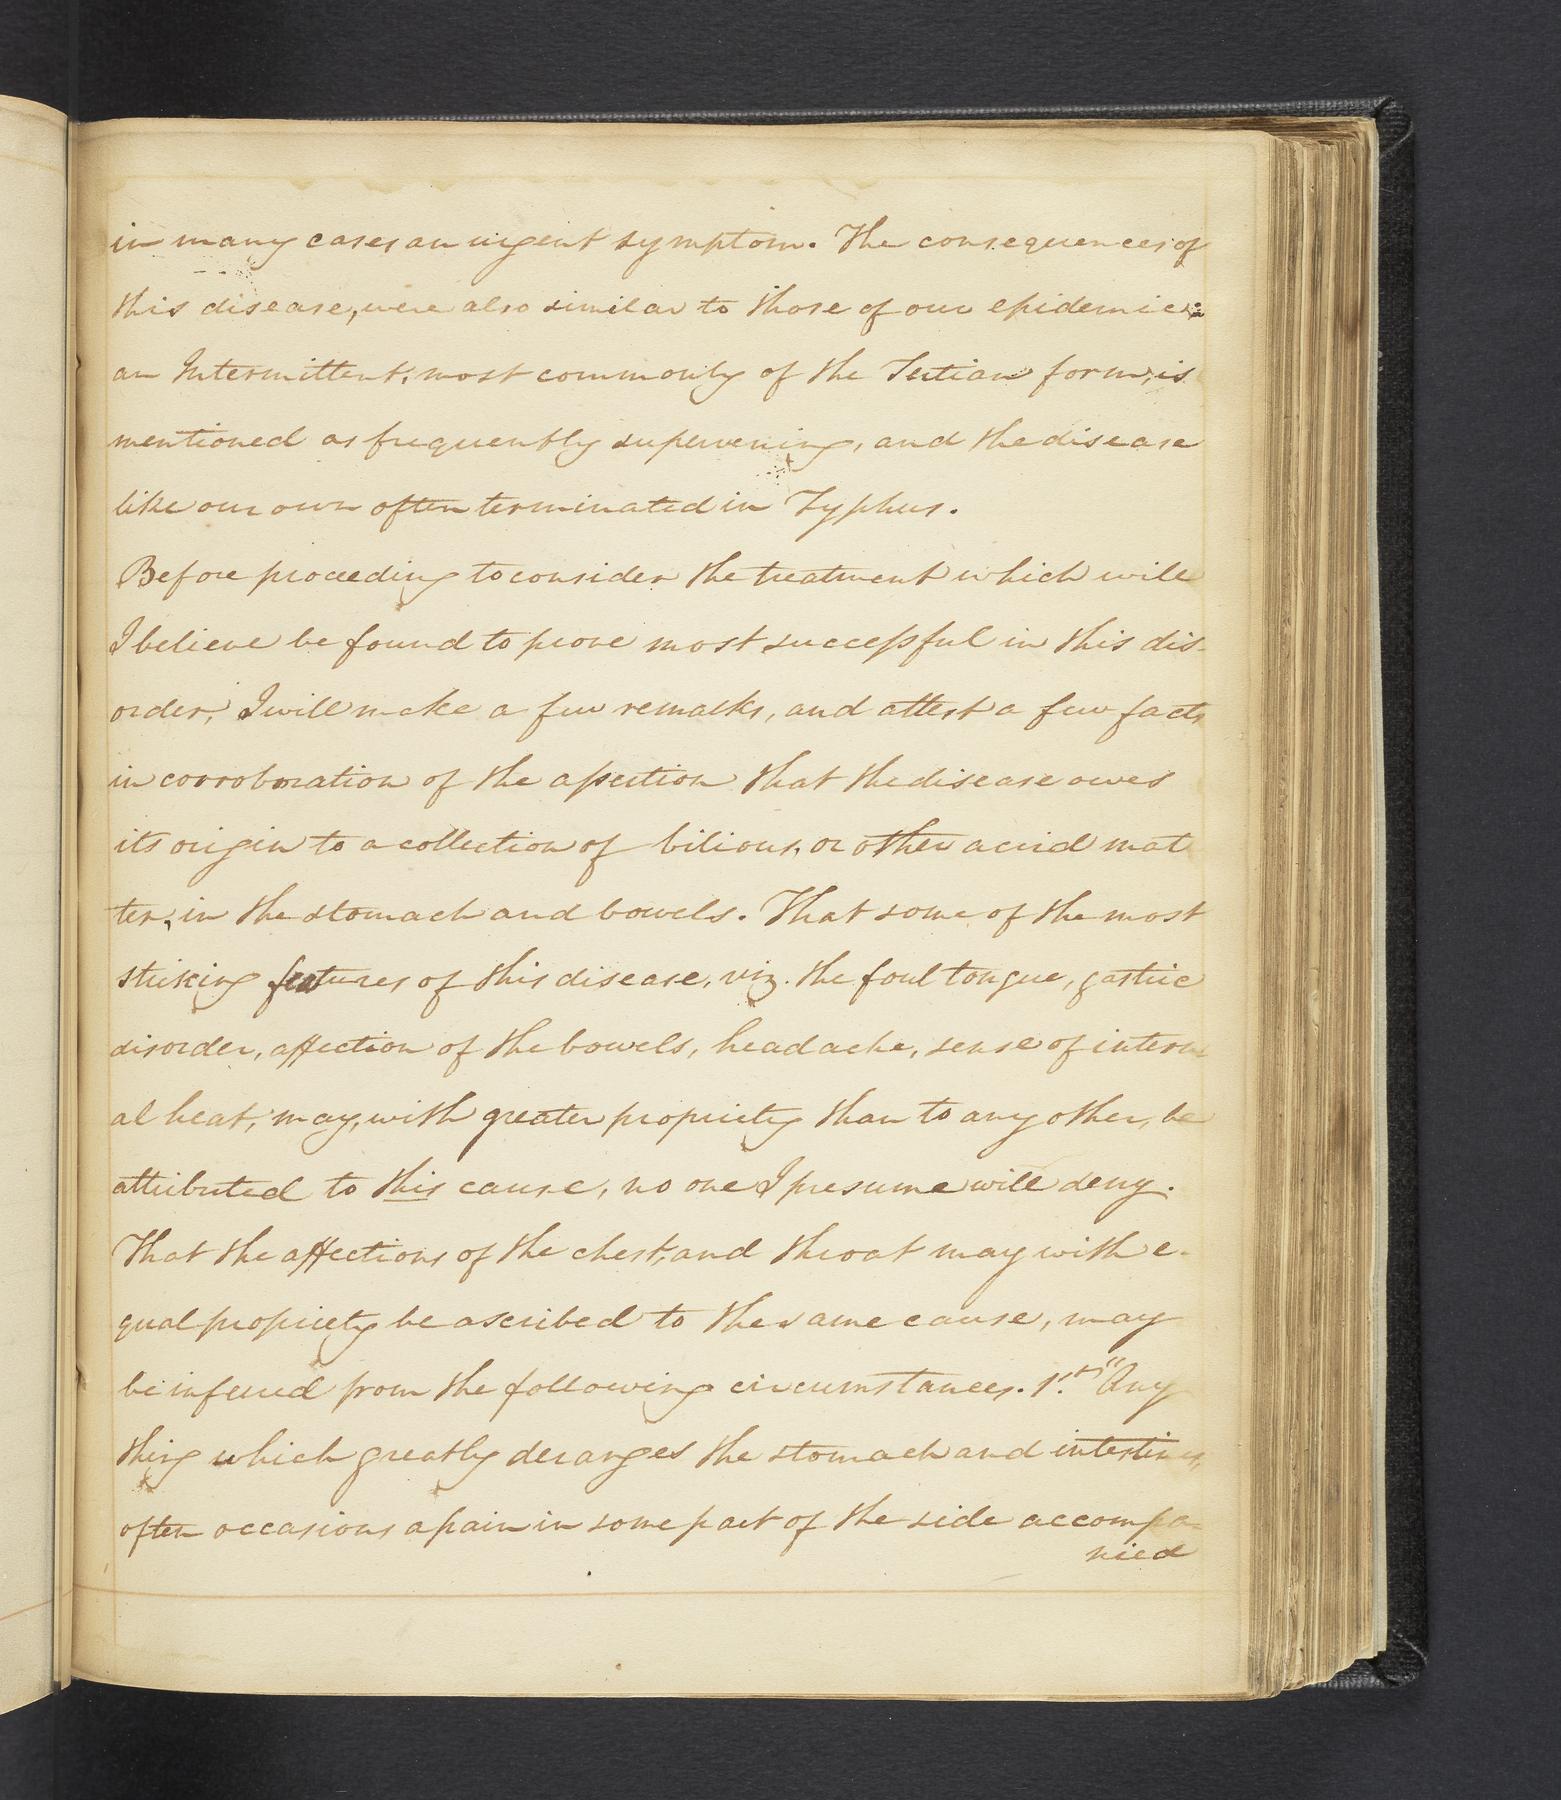 in many cases an urgent symptom. The consequences of
this disease, were also similar to those of our epidemic:
an Intermittent, most commonly of the Tertian form, is
mentioned as frequently supervening, and the disease
like our own often terminated in Typhus.
Before proceeding to consider the treatment which will
I believe be found to prove most successful in this dis-
order, I will make a few remarks, and attest a few facts
in corroboration of the assertion that the disease owes
its origin to a collection of bilious, or other acrid mat
ter, in the stomach and bowels. That some of the most
striking features of this disease, viz. the foul tongue, gastric
disorder, affection of the bowels, headache, sense of intern
al heat, may, with greater propriety than to any other, be
attributed to this cause, no one I presume will deny.
That the affections of the chest, and throat may with e-
qual propriety be ascribed to the same cause, may
be inferred from the following circumstances. 1.st "Any
thing which greatly deranges the stomach and intestines,
often occasions a pain in some part of the side accompa-
nied